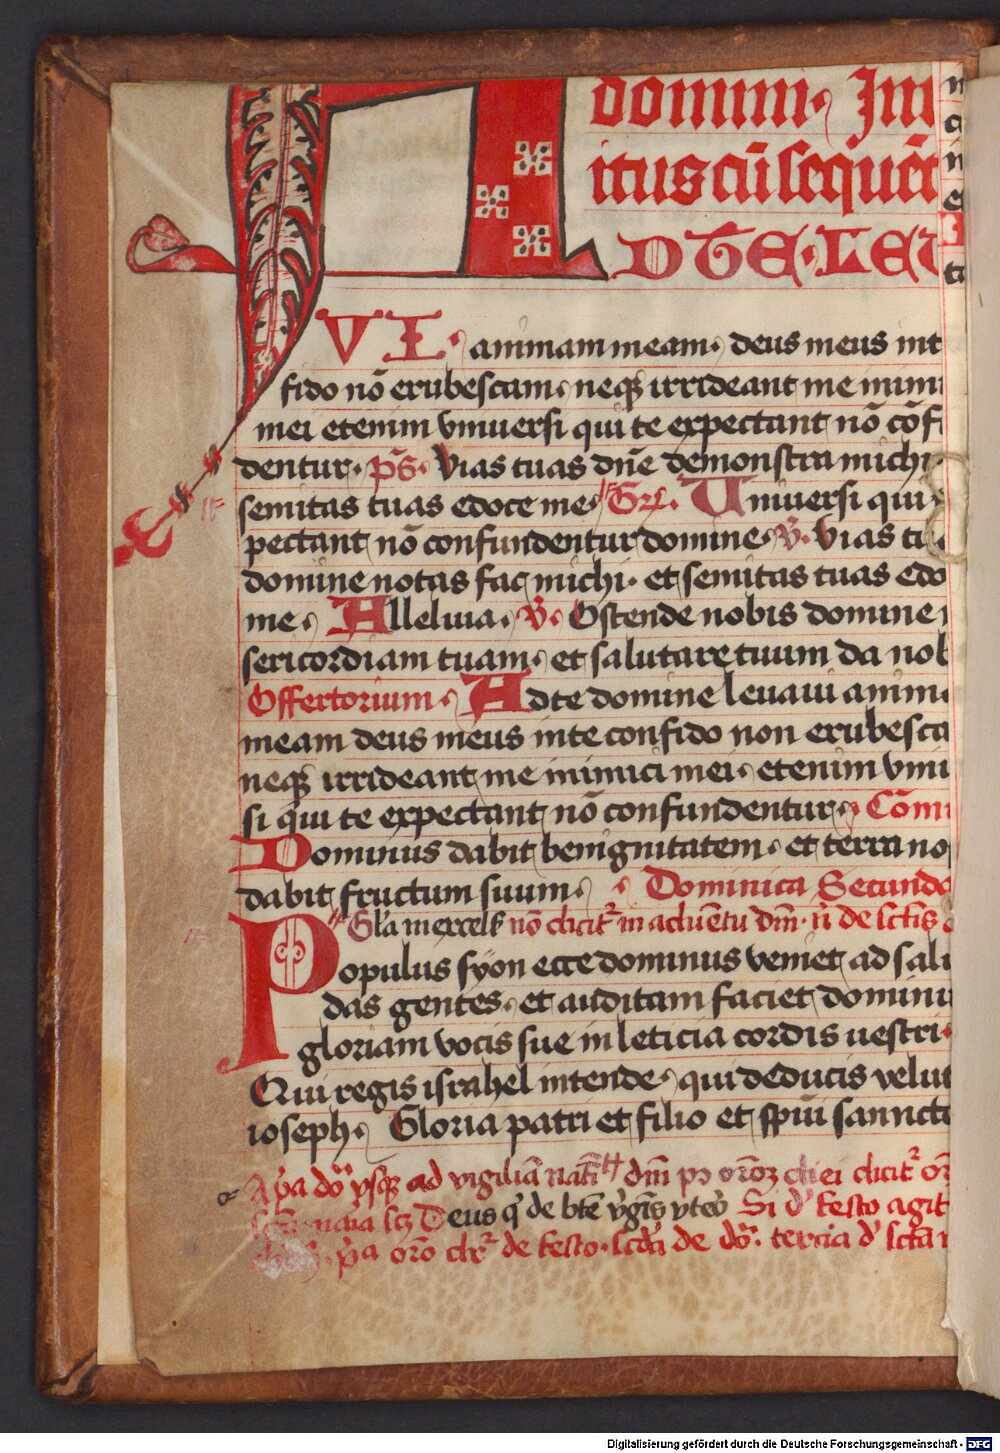 domini. Im
itus cū sequēt
AD TE. LEV
VI. animam meam. deus meus int
fido nō erubescam. neqȝ irrideant me inimi
mei etenim vniuersi qui te expectant nō cōf
dentur. ps. Vias tuas dn̄e demonstra michi
semitas tuas edoce me. Gr̄. Uniuersi qui
pectant nō confundentur domine. V. Vias tu
domine notas fac michi. et semitas tuas edo
me. Alleluia. V. Ostende nobis domine
sericordiam tuam. et salutare tuum da nob
Offertorium. Ad te domine leuaui anim
meam deus meus in te confido non erubesca
neqȝ irrideant me inimici mei. etenim vni
si qui te expectant nō confundentur. Cōm
Dominus dabit benignitatem. et terra no
dabit fructum suum. Dominica Secunda
Gl'a in excels nō dicit in aduētu dn̄i. de sctīs
Populus syon ecce dominus veniet ad sal
das gentes. et auditam faciet domin
gloriam vocis sue in leticia cordis uestri.
Qui regis israhel intende. qui deducis velut
ioseph. Gloria patri et filio et spūi sanncto
A p'a do vsqȝ ad vigiliā dn̄i diei dicit
Deus q' de btē v'gīs Si d' festo agit
p'a orō de festo. scd'a de do. tercia d' sctā
Digitalisierung gefördert durch die Deutsche Forschungsgemeinschaft - DFG